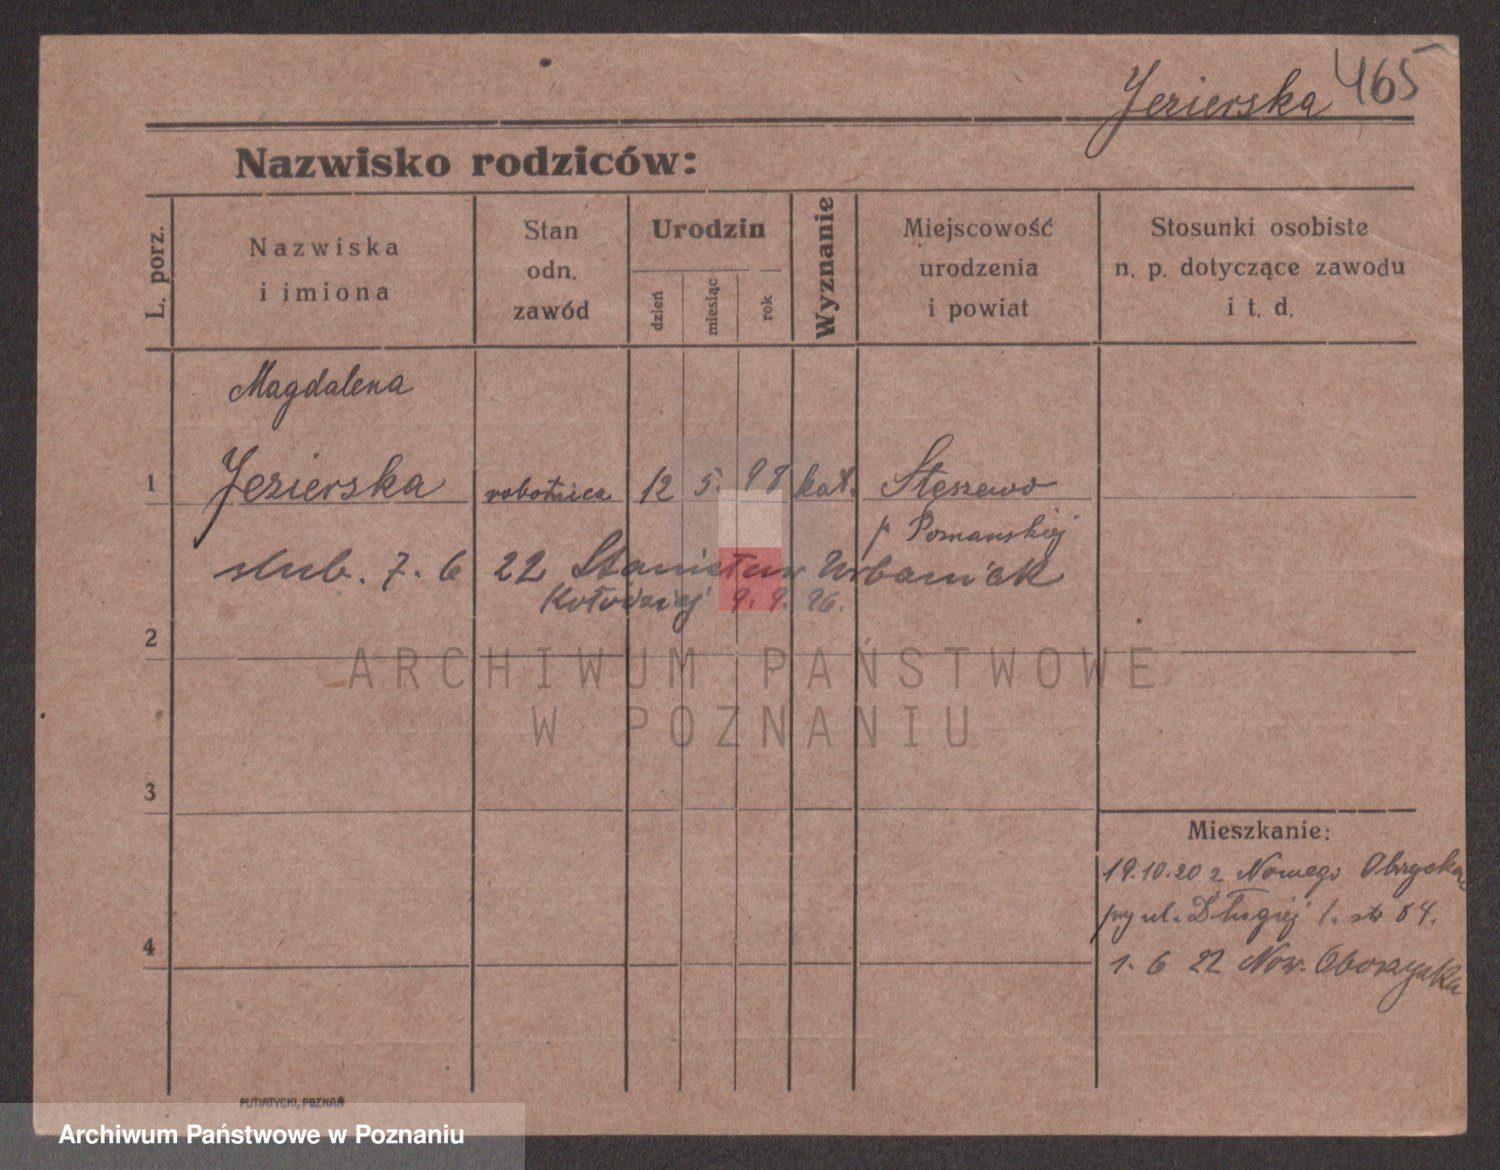 Jezierska 465
Nazwisko rodziców:
L. porz.
Nazwiska
i imiona
Stan
odn.
zawód
Urodzin
dzień
miesiąc
rok
Wyznanie
Miejscowość
urodzenia
i powiat
Stosunki osobiste
n. p. dotyczące zawodu
i t. d.
Magdalena
1 Jezierska robotnica 12 5. 98 kat. Stęszewo
p Poznańskiej
slub. 7. 6 22 Stanisław Urbaniak
Kołodziej 9. 9. 96.
2
ARCHIWUM PAŃSTWOWE
W POZNANIU
3
Mieszkanie:
19.10.20 z Nowego Obrzycka
przy ul. Długiej 1. str 84.
4
1. 6 22 Now. Oborzycka
PUTIATYCKI, POZNAŃ
Archiwum Państwowe w Poznaniu